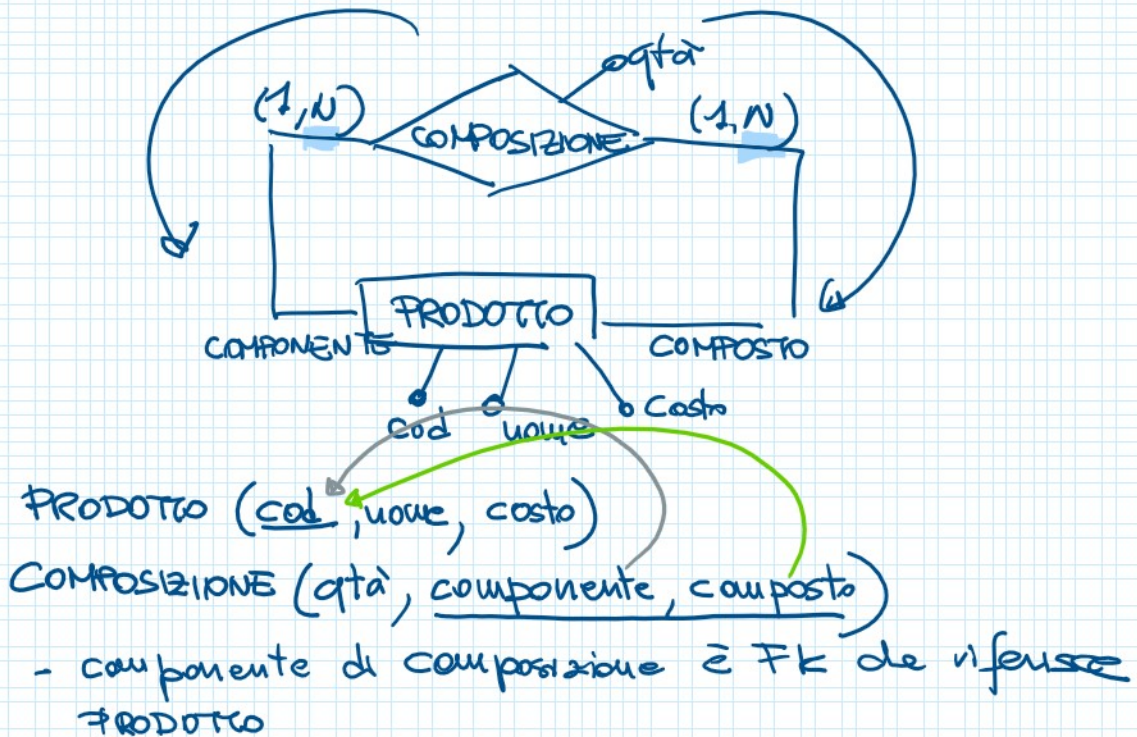 qtà
(1,N)
COMPOSIZIONE
(1,N)
PRODOTTO
COMPONENTE
COMPOSTO
cod
nome
Costo
PRODOTTO (cod, nome, costo)
COMPOSIZIONE (qtà, componente, composto)
- componente di composizione è FK che riferisce
PRODOTTO